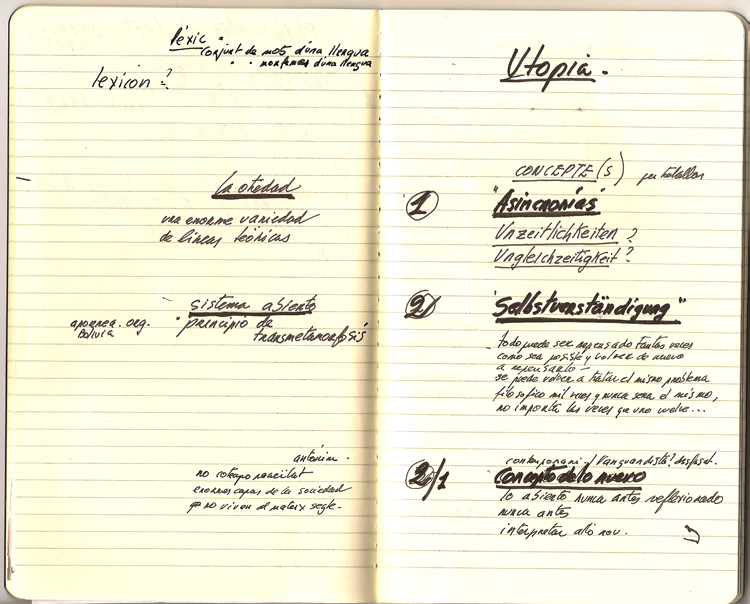 lèxic -
conjunt de mots d'una llengua
" " morfemes d'una llengua
lexicon?
La otredad
una enorme variedad
de líneas teóricas
sistema abierto
aporrea.org.
Bolivia
"principio de
transmetamorfosis
antònim.
no contemporaneïtat
enormes capas de la sociedad
que no viven el mateix segle-
Utopia.
CONCEPTE(S) per treballar
1 "Asincronías"
Unzeitlichkeiten?
Ungleichzeitigkeit?
2 "Selbstverständigung"
todo puede ser repensado tantas veces
como sea posible y volver de nuevo
a repensarlo-
se puede volver a tratar el mismo problema
filosofico mil veces y nunca sera el mismo,
no importa las veces que uno vuelve...
contemporani-/Vanguardista? desfasat.
2/1 Concepto de lo nuevo
lo abierto nunca antes reflexionado
nunca antes
interpretar allò nou.